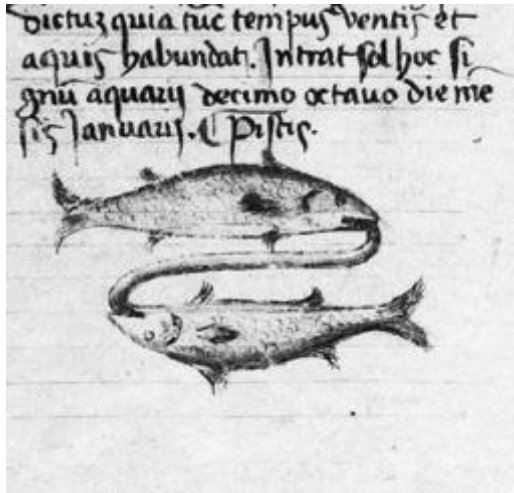 dictuz quia tūc tempus ventis et
aquis habundat. Intrat sol hoc si
gnū aquarij decimo octauo die mē
sis Januarij. ⸿ Piscis.